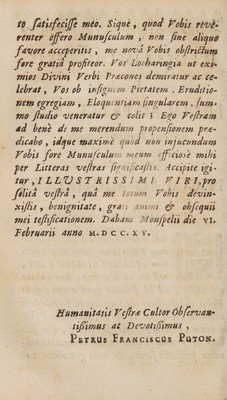 to satisfecisse meo. Siquè, quod Vobis reve-
renter offero Munusculum, non sine aliquo
favore acceperitis, me novâ Vobis obstrictum
fore gratiâ profiteor. Vos Lotharingia ut exi-
mios Divini Verbi Præcones demiratur ac ce-
lebrat, Vos ob insignem Pietatem, Eruditio-
nem egregiam, Eloquentiam singularem, sum-
mo studio veneratur & colit; Ego Vestram
ad benè de me merendum propensionem præ-
dicabo, idque maximè quòd non injucundum
Vobis fore Munusculum meum officiosè mihi
per Litteras vestras significastis. Accipite igi-
tur, ILLUSTRISSIMI VIRI, pro
solitâ vestrâ, quâ me totum Vobis devin-
xistis, benignitate, grati animi & obsequii
mei testificationem. Dabam Monspelii die VI.
Februarii anno M.DCC.XV.
Humanitatis Vestræ Cultor Observan-
tissimus ac Devotissimus,
PETRUS FRANCISCUS PUTON.